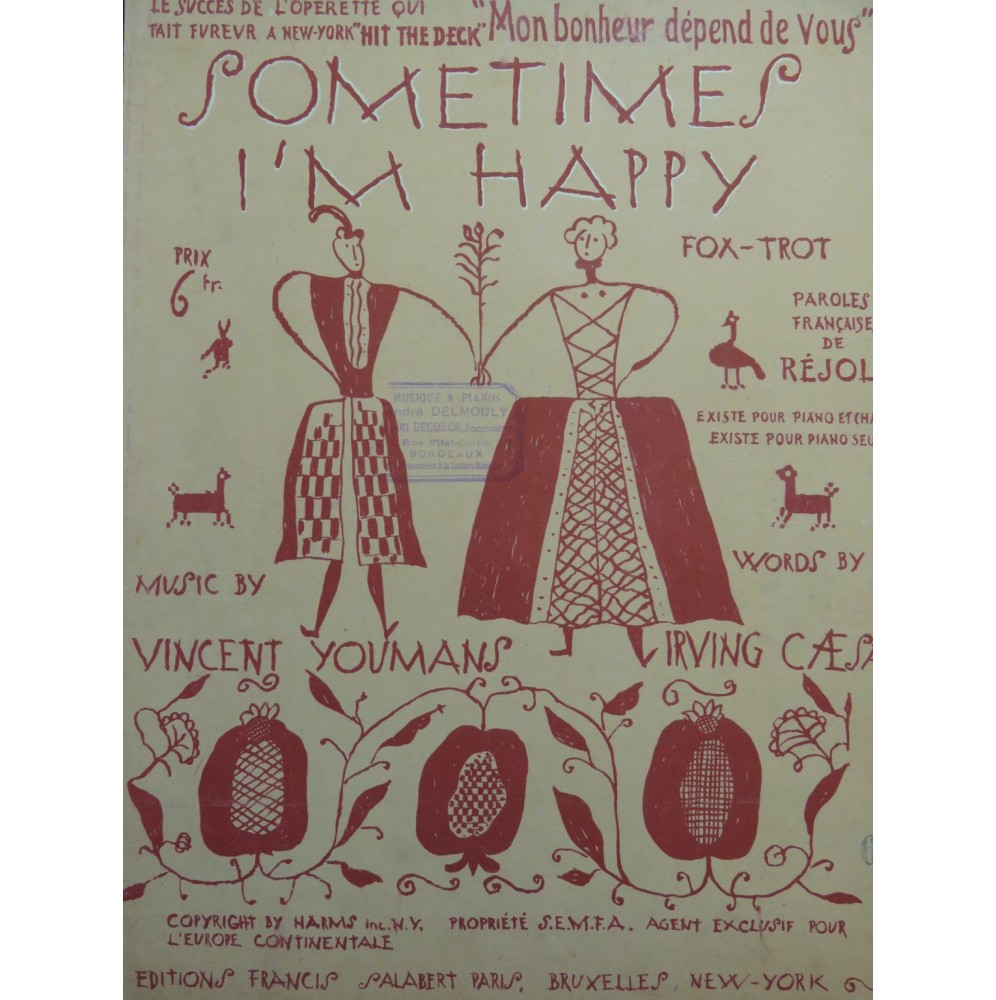 LE SUCCÈS DE L'OPÉRETTE QUI
FAIT FUREUR A NEW-YORK "HIT THE DECK"
"Mon bonheur dépend de Vous"
SOMETIMES
I'M HAPPY
PRIX
6 fr.
FOX-TROT
PAROLES
FRANÇAISE
DE
RÉJOL
EXISTE POUR PIANO ET CHA
EXISTE POUR PIANO SEU
MUSIQUE & PIANOS
ndré DELMOULY
DEGORCE, Successeur
Rue Vital-Carles
BORDEAUX
MUSIC BY
VINCENT YOUMANS
WORDS BY
IRVING CÆSA
COPYRIGHT BY HARMS inc. N.Y. PROPRIÉTÉ S.E.M.F.A. AGENT EXCLUSIF POUR
L'EUROPE CONTINENTALE
EDITIONS FRANCIS SALABERT PARIS, BRUXELLES, NEW-YORK